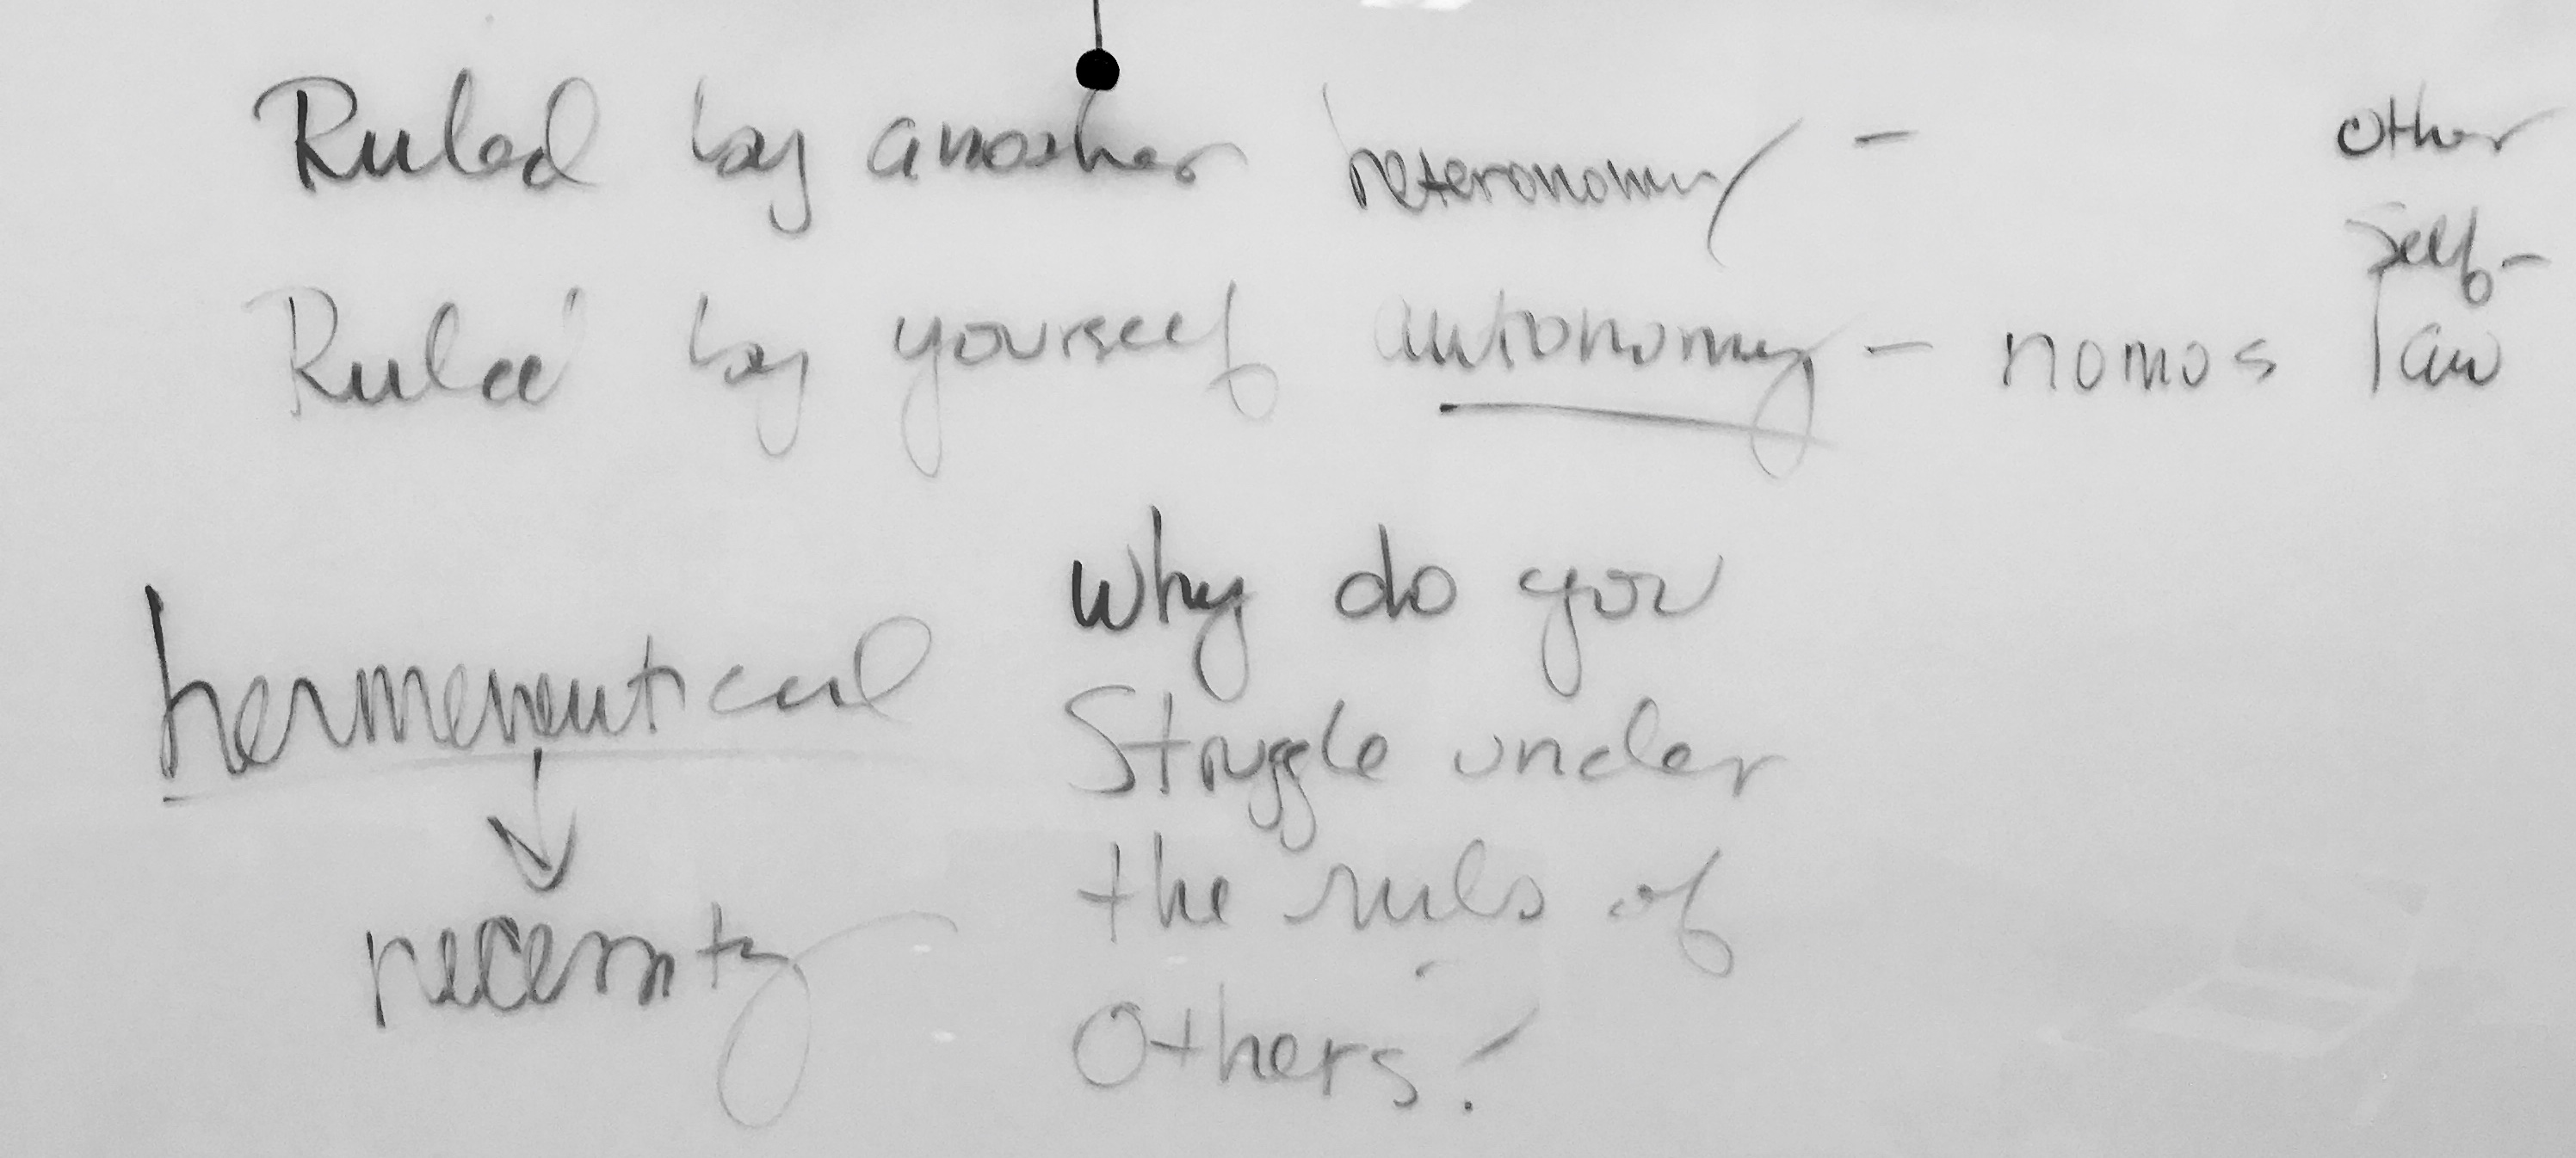 Ruled by another heteronomy - other
self-
Ruled by yourself autonomy - nomos law
hermeneutical
necessity
Why do you
Struggle under
the rules of
Others?